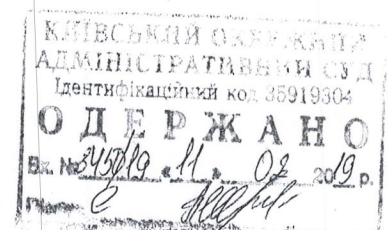 КИЇВСЬКИЙ ОКРУЖНИЙ
АДМІНІСТРАТИВНИЙ СУД
Ідентифікаційний код 35919304
ОДЕРЖАНО
Вх. № 345019 „11" 02 2019 р.